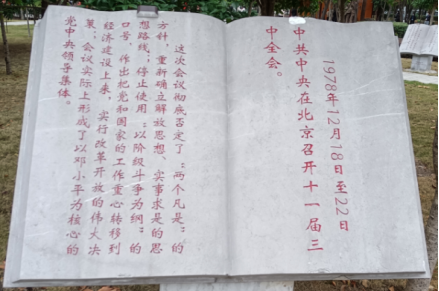 1978年12月18日至22日
中共中央在北京召开十一届三
中全会。
这次会议彻底否定了“两个凡是”的
方针，重新确立解放思想、实事求是的思
想路线；停止使用“以阶级斗争为纲”的
口号，作出把党和国家的工作重心转移到
经济建设上来，实行改革开放的伟大决
策；会议实际上形成了以邓小平为核心的
党中央领导集体。